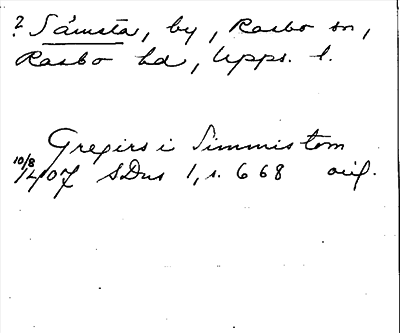 ? Sämsta, by, Rasbo sn,
Rasbo hd, Upps. l.
Gregirs i Simmistom
10/8 1407 SDns 1, s. 668 orig.